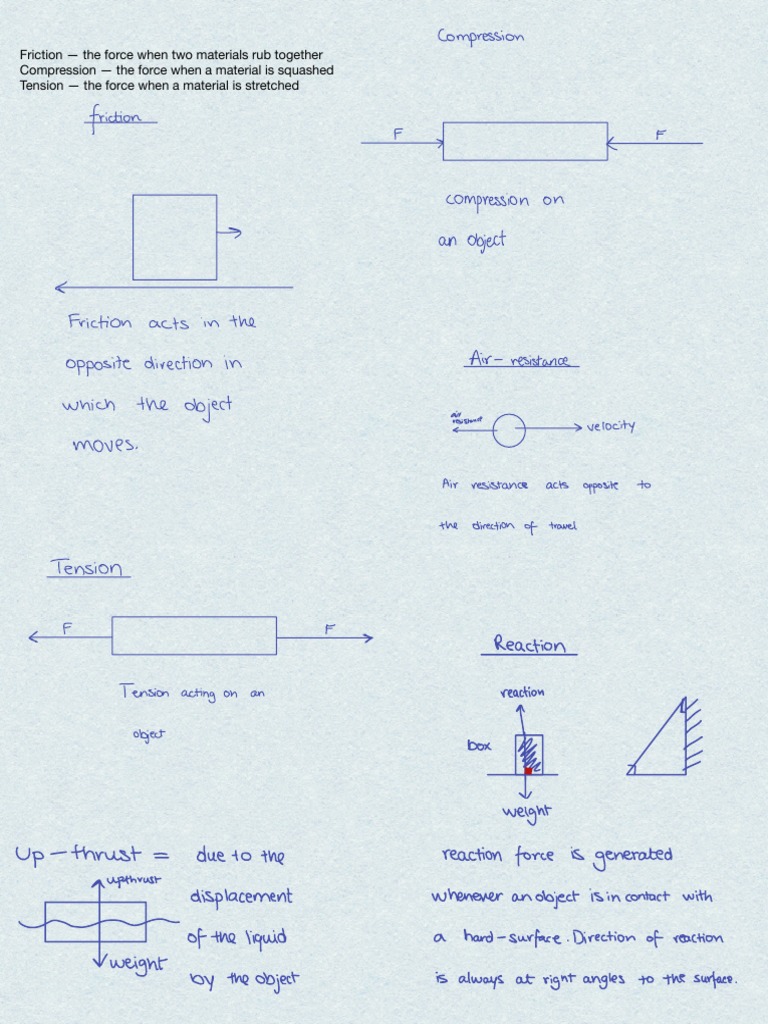 Friction — the force when two materials rub together
Compression — the force when a material is squashed
Tension — the force when a material is stretched
friction
Friction acts in the
opposite direction in
which the object
moves.
Compression
F
F
compression on
an object
Air-resistance
air
resistance
velocity
Air resistance acts opposite to
the direction of travel
Tension
F
F
Tension acting on an
object
Reaction
reaction
box
weight
reaction force is generated
whenever an object is in contact with
a hard-surface. Direction of reaction
is always at right angles to the surface.
Up-thrust = due to the
displacement
of the liquid
by the object
upthrust
weight